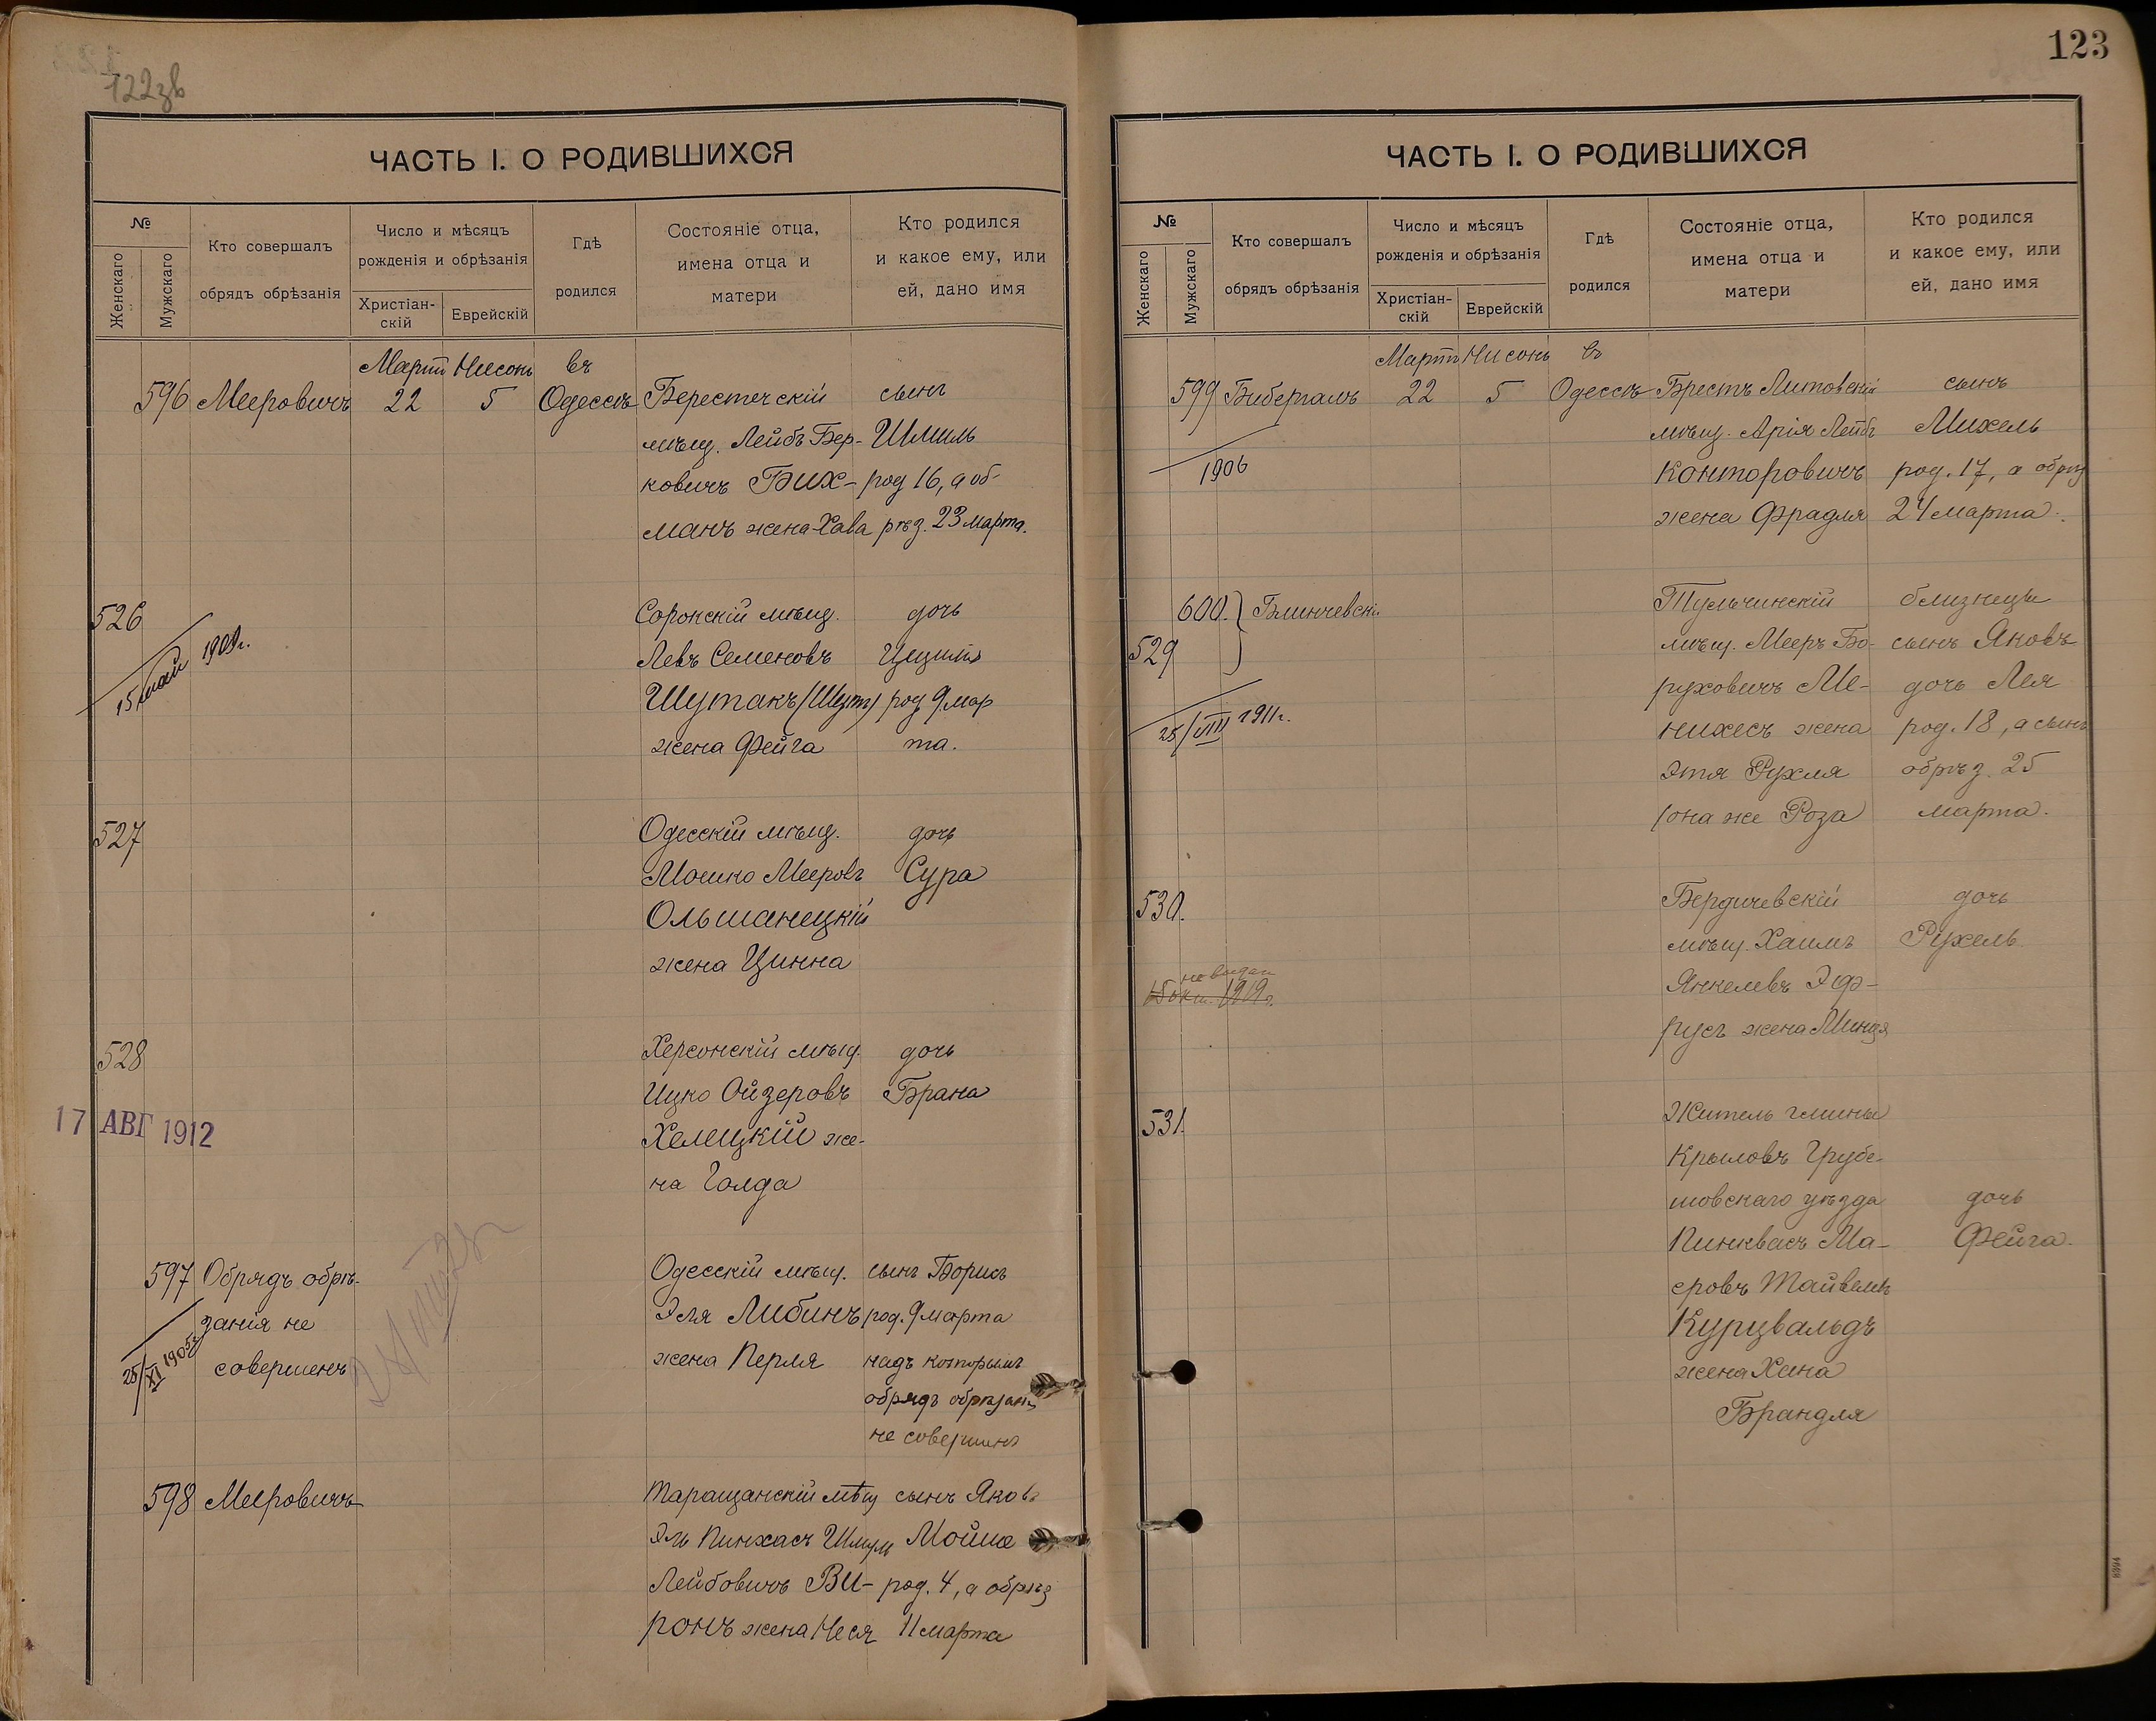 122зв
ЧАСТЬ I. О РОДИВШИХСЯ
№
Женскаго
Мужскаго
Кто совершалъ
обрядъ обрѣзанія
Число и мѣсяцъ
рожденія и обрѣзанія
Христіан-
скій
Еврейскій
Гдѣ
родился
Состояніе отца,
имена отца и
матери
Кто родился
и какое ему, или
ей, дано имя
Мартъ Нисонъ въ
596 Мееровичъ 22 5 Одессѣ Берестечскій сынъ
мѣщ. Лейбъ Бер- Шмиль
ковичъ Бих- род 16, а об-
манъ жена Хава рѣз. 23 марта.
526 Сорокскій мѣщ. дочь
15 май 1909г.
Левъ Семеновъ Цицилія
Шутакъ (Шутъ) род 9 мар
жена Фейга та.
527 Одесскій мѣщ. дочь
Мошко Мееровъ Сура
Ольшанецкій
жена Цинна
528 Херсонскій мѣщ. дочь
Ицко Ойзеровъ Брана
17 АВГ 1912
Хелецкій же-
на Голда
597 Обрядъ обрѣ- Одесскій мѣщ. сынъ Борисъ
занія не Эля Либинъ род. 9 марта
25/XI 1905г
совершенъ жена Перля надъ которымъ
обрядъ обрѣзанія
не совершенъ
598 Мееровичъ Таращанскій мѣщ сынъ Яковъ
Эль Пинхасъ Шмул Мойше
Лейбовичъ Ви- род. 4, а обрѣз
ронъ жена Неся 11 марта
123
ЧАСТЬ I. О РОДИВШИХСЯ
№
Женскаго
Мужскаго
Кто совершалъ
обрядъ обрѣзанія
Число и мѣсяцъ
рожденія и обрѣзанія
Христіан-
скій
Еврейскій
Гдѣ
родился
Состояніе отца,
имена отца и
матери
Кто родился
и какое ему, или
ей, дано имя
Мартъ Нисонъ въ
599 Бибергалъ 22 5 Одессѣ Брестъ Литовскій сынъ
мѣщ. Арія Лейбъ Михель
1906
Конторовичъ род. 17, а обрѣз
жена Фрадля 24 марта.
600. Блинчевскій Тульчинскій близнецы
529 мѣщ. Мееръ Бо- сынъ Яковъ
руховичъ Ме- дочь Лея
25/VIII 1911г.
нихесъ жена род. 18, а сынъ
Этя Рухля обрѣз. 25
(она же Роза марта.
530. Бердичевскій дочь
мѣщ. Хаимъ Рухель
не выдан
15 окт. 1919г.
Янкелевъ Эф-
русъ жена Минця
531. Житель гмины
Крыловъ Грубе-
шовскаго уѣзда дочь
Пинквасъ Ма- Фейга.
еровъ Тайвель
Курцвальдъ
жена Хана
Брандля
8394